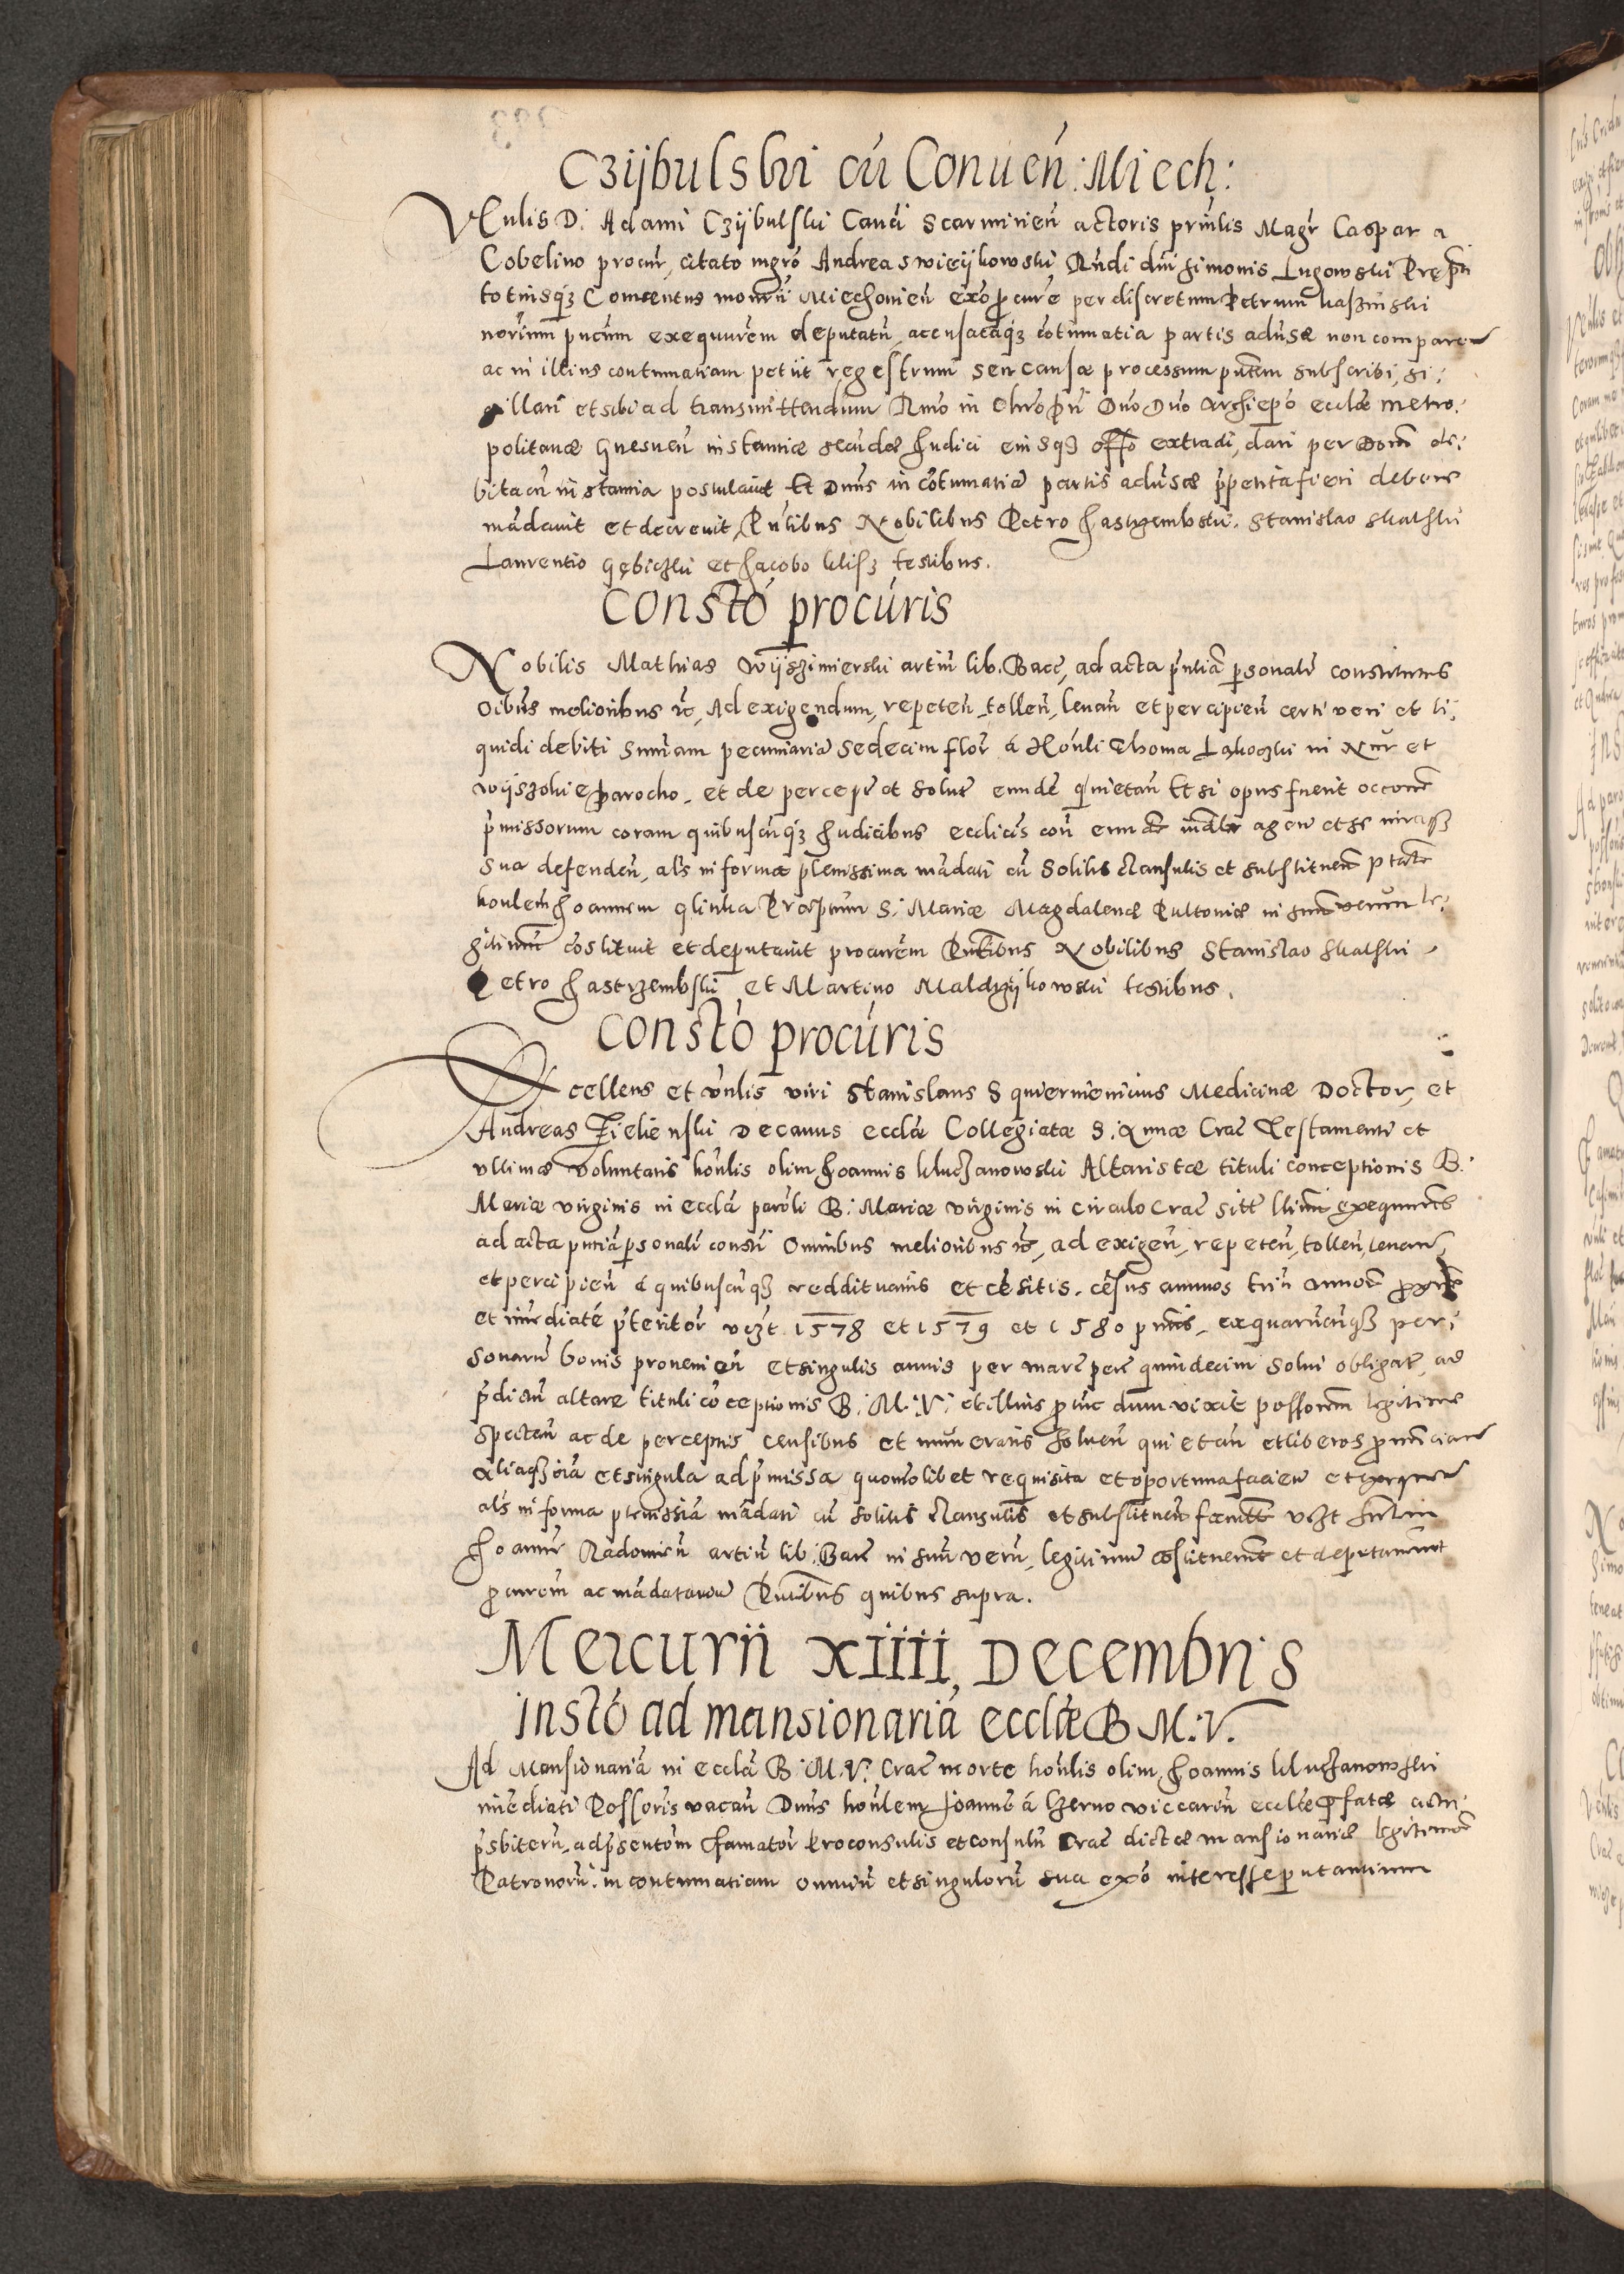 Czijbulski cū Conuen̄: Miech:
VEnlis D: Adami Czijbulski Canci Scarmirien̄ actoris prin̄lis Magr Caspar a
Cobelino procur, citato mgro Andrea swieijkowski R̄ndi dn̄i Simonis Lugowski Prępti
totiusq₃ Conuentus mon̄rii Miechouien̄ exo procure per discretum Petrum
norium pucum exequurem deputatū, accusataq₃ cōtumatia partis adusæ non comparen
ac in illius contumatiam petiit regestrum seu causæ processum pn̄tem subscribi, si:
gillari et sibi ad transmittendum Rmo in Chro pri Dno Dno Archiepo ecclæ metro:
politanæ Gnesnen̄ instantiæ secūdæ Judici eiusq₃ offo extradi, dari per Dom̄ de:
bita cū instantia postulauit Et Dn̄us in cōtumatiā partis aduſæ p̄petita fieri debere
mādauit et decreuit, Pn̄tibus Nobilibus Petro Jastrzembski. Stanislao Skalski
Laurentio Gębiczki et Jacobo testibus.
Constō procūris
Nobilis Mathias Wijszimierski artiū lib. Bacc, ad acta p̄ntiā p̄sonalr constitutus
Oibus melioribus rc, Ad exigendum, repeten̄, tollen̄, leuan̄ et percipien̄ certi veri et li:
quidi debiti summam pecuniariā sedecim flor á Honli Thoma in Nur et
wijszokie parocho, et de percept et solut eundē quietan̄ Et si opus fuerit occone
p̄missorum coram quibuscūq₃ Judicibus ecclicis con̄ eundē agen et se iuraq₃
sua defenden̄, als in forma plenissima mādati cū Solitis clausulis et substituen̄ ptate
honlem Joannem glinka Præptum S: Mariæ Magdalenæ Pultouiæ in suum verum le:
gitimum cōstituit et deputauit procurem Pn̄tibus Nobilibus Stanislao Skalski
Petro Jastrzembski et Martino Maldrzijkowski testibus.
Constō procūris
Excellens et vn̄lis viri Stanislaus Squierineuicius Medicinæ Doctor, et
Andreas Zielienski Decanus ecclæ Collegiatæ S: Annæ Crac Testamenti et
vltimæ voluntatis hon̄lis olim Joannis Kluczanowski Altaristæ tituli conceptionis B:
Mariæ virginis in ecclā paroli B: Mariæ virginis in circulo Crac sitt llimi exequutores
ad acta pntiā p̄sonalr consti Omnibus melioribus rc, ad exigen̄, repeten̄, tollen̄, leuan̄,
et percipien̄ á quibuscūq₃ reddituariis et cēsitis. cēsus annuos triū annor̄ proxime
et immediaté p̄teritor vczt. 1578 et 1579 et 1580 pn̄tis, ex quarūcūq₃ per:
sonarū bonis prouenien̄ et singulis annis per marc pec quindecim solui obligat, ad
p̄dictū altare tituli cōceptionis B: M: V: et illius pro tūc dum vixit possorem legitime
spectan̄ ac de perceptis censibus et numeratis soluen̄ quietan̄ et liberos pronūciand
aliaq₃ oīa et singula ad p̄missa quomolibet requisita et oportuna facien et
als in forma plenissiā mādati cū solitis clausulis et substituen̄ vczt
Joannē Radomien̄ artiū lib: Bacc in suū verū, legitimū cōstituerūt et deputauerūt
procurem ac mādatariū Pn̄tibus quibus supra.
Mercurii XIIII Decembris
Instō ad mansionariā ecclæ B M: V.
Ad Mansionariā in ecclā B: M: V: Crac morte hon̄lis olim, Joannis Kluczanowski
īmediati Possoris vacan̄ Dn̄us hon̄lem Joannē á viccariū ecclæ p̄fatæ actu:
p̄sbiterū, ad p̄sentom famator Proconsulis et consulū Crac dictæ mansionariæ legitimor
Patronorū. in contumatiam omniū et singulorū sua exo interesse putantium